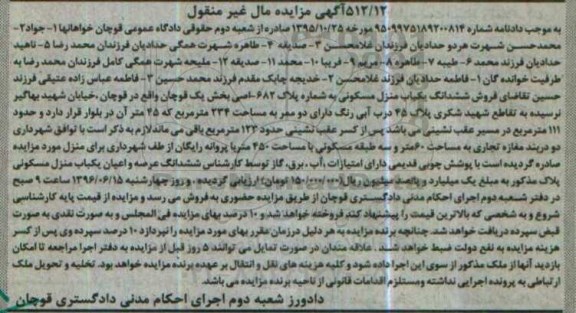 ۵۱۲/۱۲آگهی مزایده مال غیر منقول
به موجب دادنامه شماره ۹۵۰۹۹۷۵۱۸۹۲۰۰۸۱۴ مورخه ۱۳۹۵/۱۰/۲۵ صادره از شعبه دوم حقوقی دادگاه عمومی قوچان خواهانها ۱- جواد۲-
محمدحسن شهرت هر دو حدادیان فرزندان غلامحسن ۳- صدیقه ۴- طاهره شهرت همگی حدادیان فرزندان محمد رضا ۵- ناهید
حدادیان فرزند محمد ۶- طیبه ۷- طاهره ۸- مریم ۹- فریبا ۱۰- محمد ۱۱- صدیقه ۱۲- ملیحه شهرت همگی کامل فرزندان محمد رضا به
طرفیت خوانده گان ۱- فاطمه حدادیان فرزند غلامحسن ۲- خدیجه چابک مقدم فرزند محمد حسین ۳- فاطمه عباس زاده عتیقی فرزند
حسین تقاضای فروش ششدانگ یکباب منزل مسکونی به شماره پلاک ۶۸۲-اصی بخش یک قوچان واقع در قوچان ،خیابان شهید بهاگیر
نرسیده به تقاطع شهید شکری پلاک ۴۵ درب آبی رنگ دارای دو ممر به مساحت ۲۳۴ مترمربع که ۴۵ متر آن در بلوار قرار دارد و حدود
۱۱۱ مترمربع در مسیر عقب نشینی می باشد پس از کسر عقب نشینی حدود ۱۲۳ مترمربع باقی می ماند لازم به ذکر است با توافق شهرداری
دو دربند مغازه تجاری به مساحت ۶۰متر و سه طبقه مسکونی با مساحت ۴۵۰ متریا پروانه رایگان از طف شهرداری برای منزل مورد مزایده
صادره گردیده است با پوشش چوبی قدیمی دارای امتیازات ،آب ، برق، گاز توسط کارشناس ششدانگ عرصه و اعیان یکباب منزل مسکونی
پلاک مذکور به مبلغ یک میلیارد و پانصد میلیون ریال(۱۵۰/۰۰۰/۰۰۰ تومان) ارزیابی گردیده، و روز چهارشنبه ۱۳۹۶/۰۶/۱۵ ساعت ۹ صبح
در دفتر شسعبه دوم اجرای احکام مدنی دادگستری قوچان از طریق مزایده حضوری به فروش می رسد و مزایده از قیمت پایه کارشناسی
شروع و به شخصی که بالاترین قیمت را پیشنهاد کند فروخته خواهد شد و ۱۰ درصد بهای مزایده فی المجلس و به صورت نقدی به صورت
قبض سپرده دریافت خواهد شد. چنانچه برنده مزایده به هر دلیل درزمان مقرر بهای مورد مزایده را نپردازد ۱۰ درصد سپرده وی پس از کسر
هزینه مزایده به نفع دولت ضبط خواهد شد. علاقه مندان در صورت تمایل می توانند ۵ روز قبل از مزایده به دفتر اجرا مراجعه تا امکان
بازدید آنها از ملک مذکور از سوی این اجرا داده شود و کلیه هزینه های نقل و انتقال بر عهده برنده مزایده خواهد بود. تخلیه و تحویل ملک
ارتباطی به پرونده اجرایی نداشته ومستلزم اقدامات قانونی از ناحیه برنده مزایده می باشد.
دادورز شعبه دوم اجرای احکام مدنی دادگستری قوچان